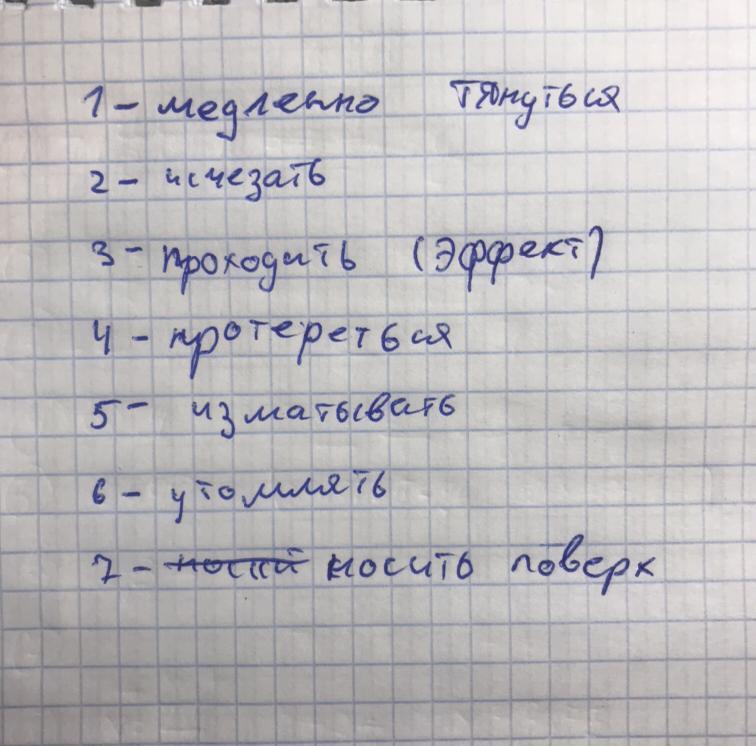 1 - медленно тянуться
2 - исчезать
3 - проходить (эффект)
4 - протереться
5 - изматывать
6 - утомлять
7 - носить поверх